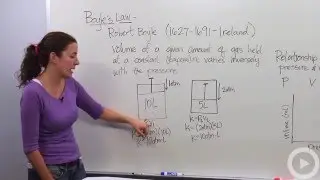 Boyle's Law -
Robert Boyle (1627-1691 - Ireland)
volume of a given amount of gas held
at a constant temperature varies inversely
with the pressure
1atm
10L
2atm
5L
K=PV
K=(2atm)(5L)
K=10atm·L
Relationship
pressure &
P V
volume (mL)